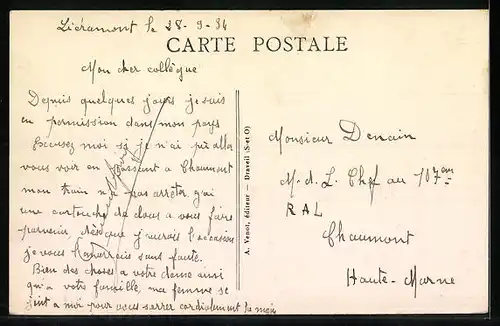 Liéramont le 28-9-34
CARTE POSTALE
Mon cher collègue
Depuis quelques jours je suis
en permission dans mon pays
Excusez moi si je n'ai pu aller
vous voir en passant a Chaumont
mon train n'a pas arreter, j'ai
une cartouche de clous a vous faire
parvenir, dès que j'aurais l'occasion
je vous l'enverrais sans faute.
Bien des choses a votre dame ainsi
qu'a votre famille, ma femme se
joint a moi pour vous serrer cordialement la main
A. Venot, éditeur — Draveil (S-et-O)
Monsieur Denain
M. d. L. Chef au 107eme
RAL
Chaumont
Haute-Marne